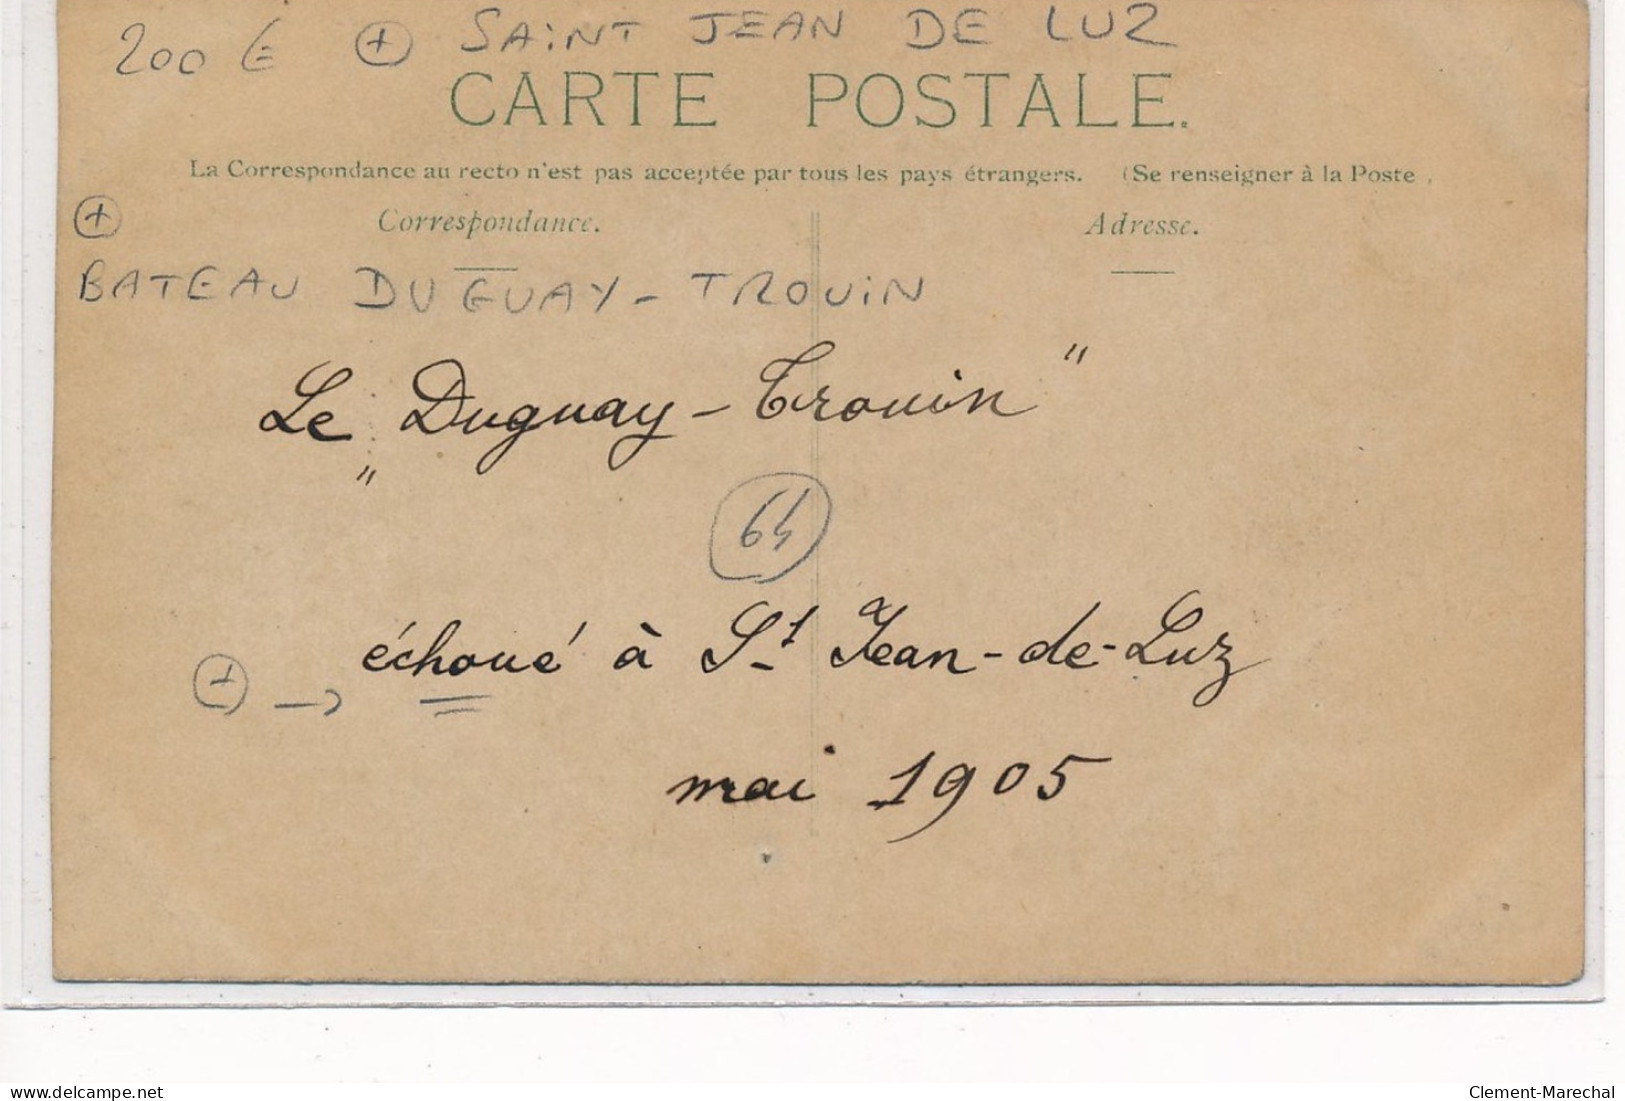 200 € + SAINT JEAN DE LUZ
CARTE POSTALE.
La Correspondance au recto n'est pas acceptée par tous les pays étrangers. (Se renseigner à la Poste .
+
Correspondance.
Adresse.
BATEAU DUGUAY-TROUIN
Le „Duguay-Trouin"
64
échoué à St Jean-de-Luz
+ →
mai 1905
www.delcampe.net
Clement-Marechal